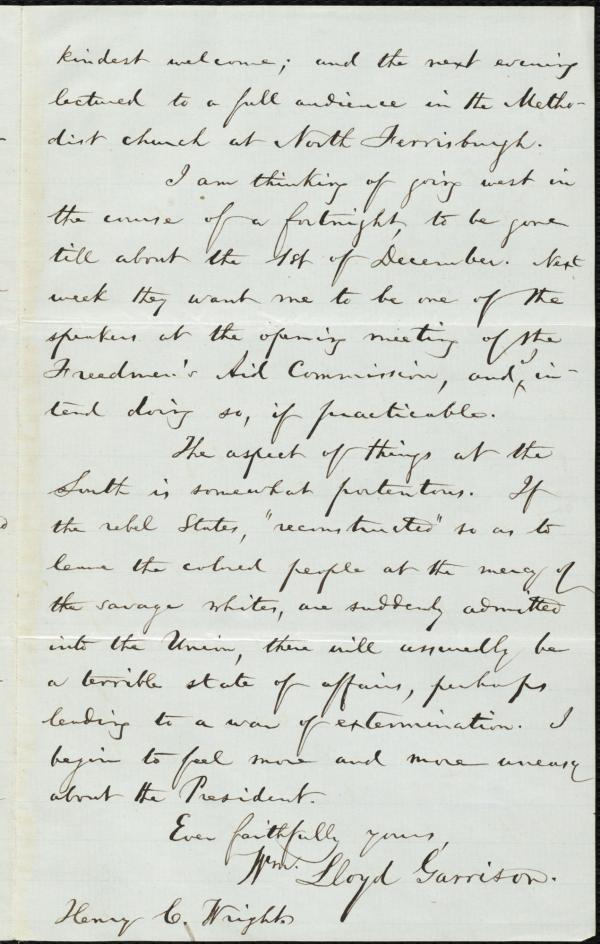 kindest welcome; and the next evening
lectured to a full audience in the Metho-
dist church at North Ferrisburgh.
I am thinking of going west in
the course of a fortnight, to be gone
till about the 1st of December. Next
week they want me to be one of the
speakers at the opening meeting of the
Freedmen's Aid Commission, and I in-
tend doing so, if practicable.
The aspect of things at the
South is somewhat portentous. If
the rebel States, "reconstructed" so as to
leave the colored people at the mercy of
the savage whites, are suddenly admitted
into the Union, there will assuredly be
a terrible state of affairs, perhaps
leading to a war of extermination. I
begin to feel more and more uneasy
about the President.
Ever faithfully yours,
Wm. Lloyd Garrison.
Henry C. Wright